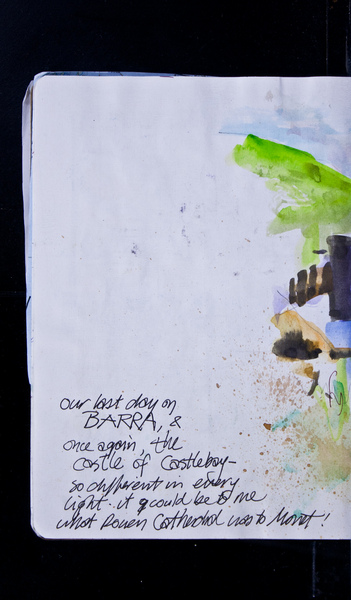 our last day on
BARRA, &
once again, the
castle of Castlebay-
so different in every
light.. it could be to me
what Rouen Cathedral was to Monet!